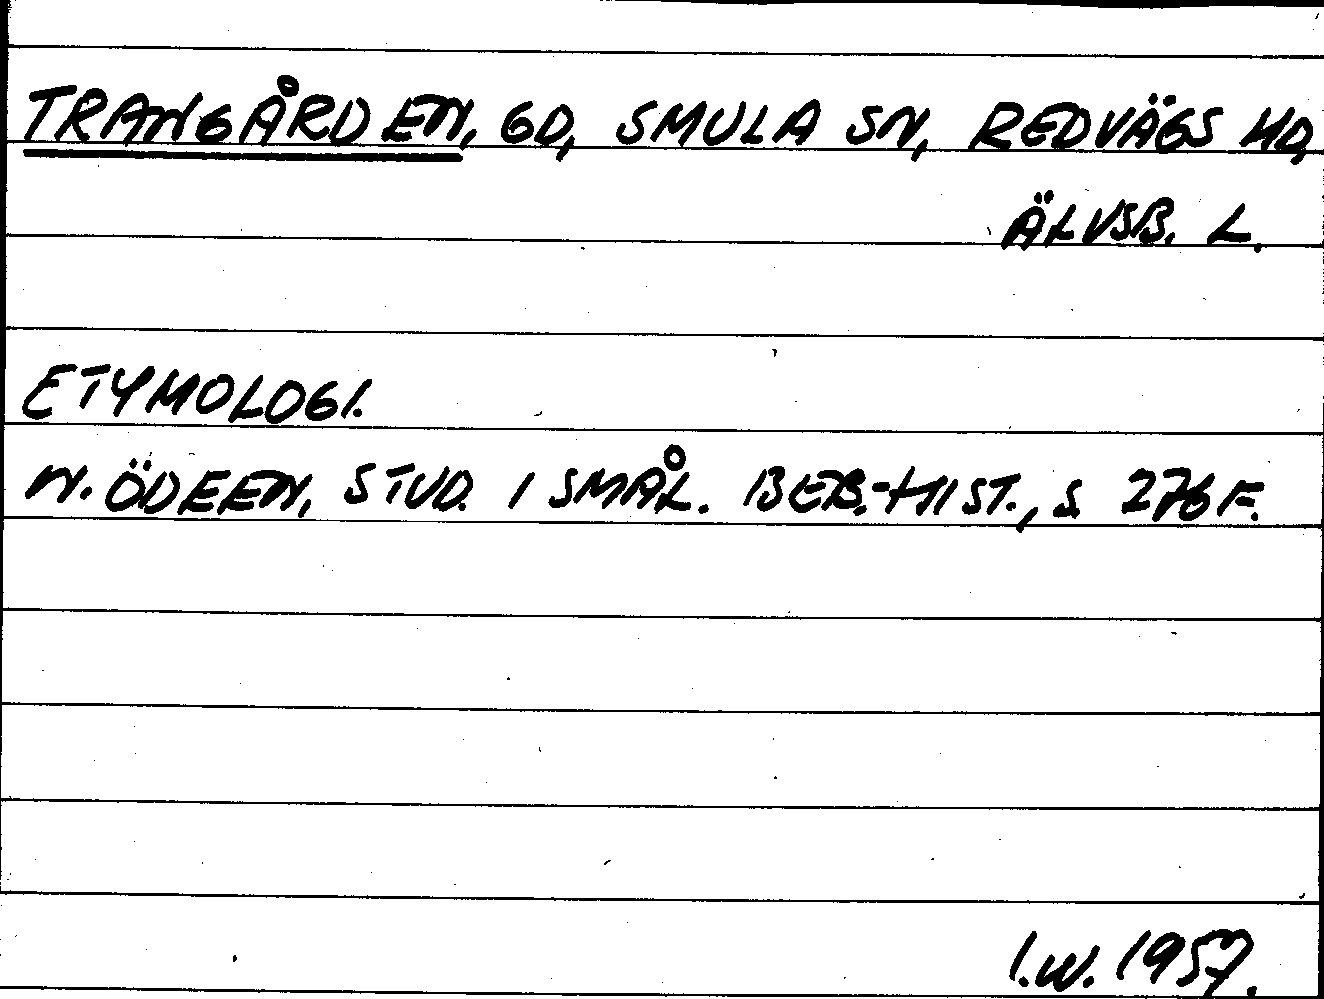 TRANGÅRDEN, GD, SMULA SN, REDVÄGS HD,
ÄLVSB. L.
ETYMOLOGI.
N. ÖDEEN, STUD. I SMÅL. BEB.-HIST., S. 276 F.
I.W. 1957.